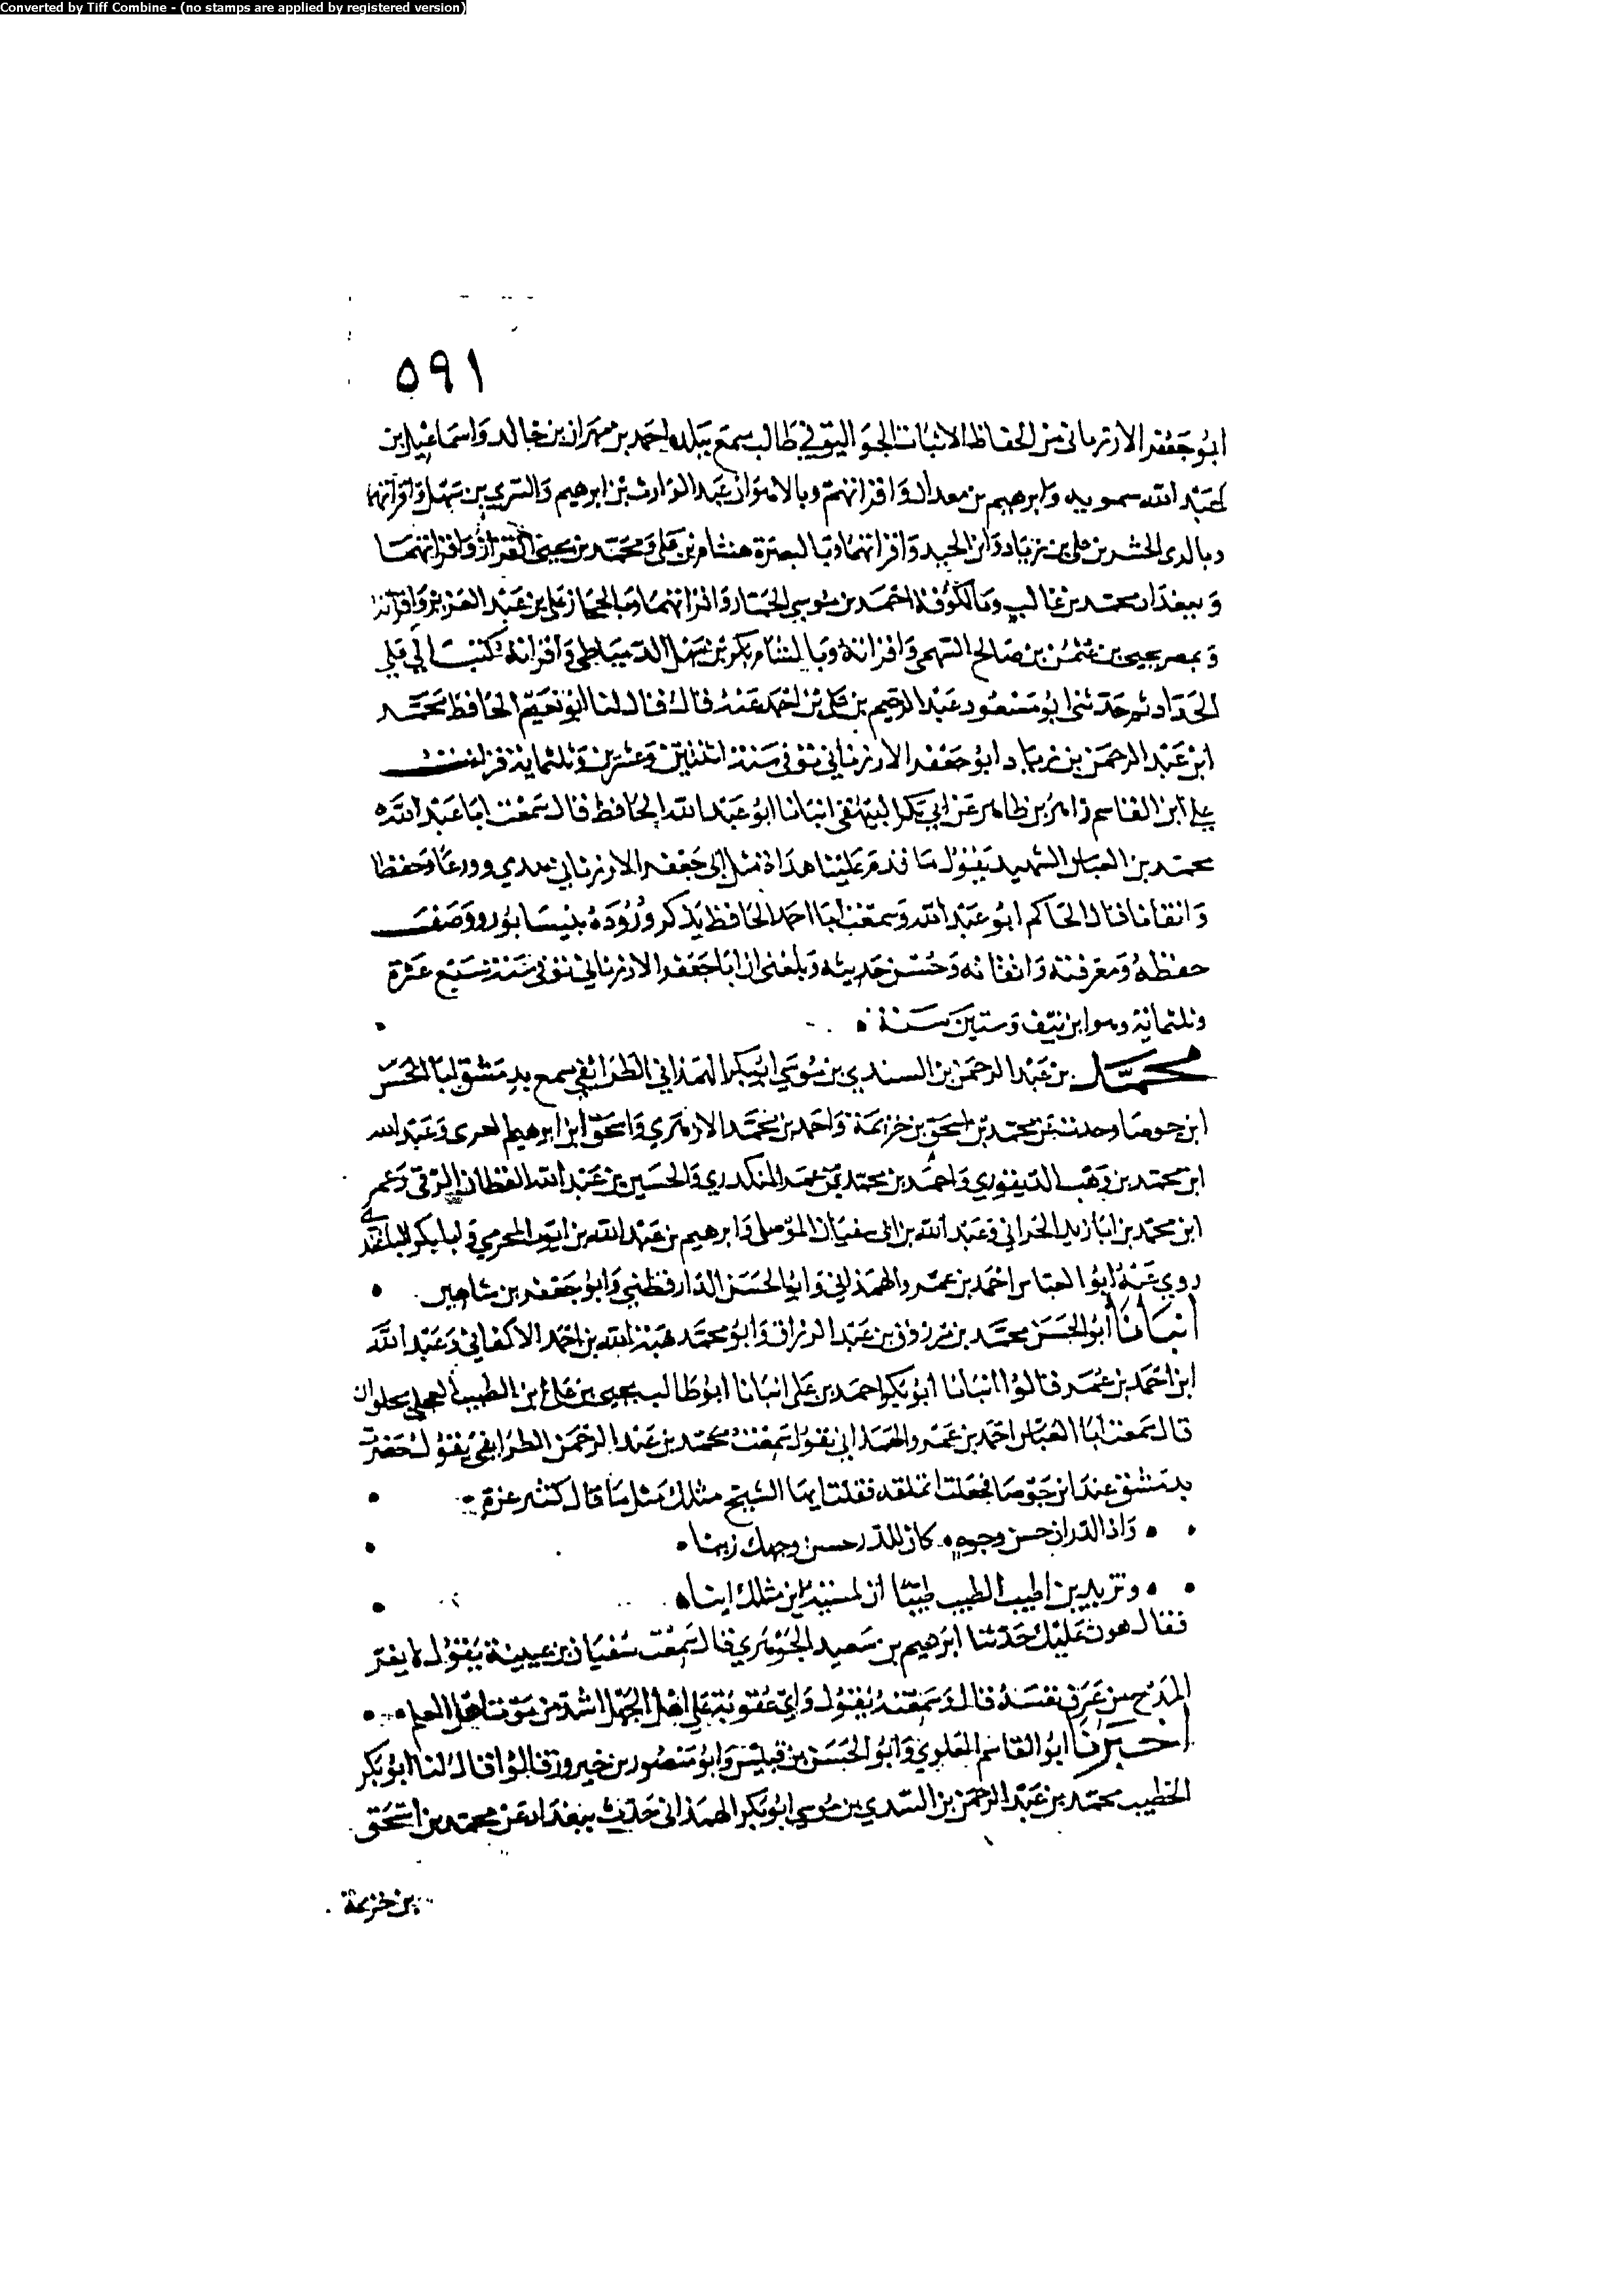 Converted by Tiff Combine - (no stamps are applied by registered version)
٥٩١
ابو جعفر الارزناني من الحفاظ الاثبات الجوالين في طالب سمع ببلده احمد بن مهران بن خالد واسماعيل بن
عبد الله سمويه وابرهيم بن معدان واقرانهم وبالاهواز عبد الوارث بن ابرهيم والسري بن سهل واقرانهما
وبالري الحسن بن علي بن زياد وابن الجنيد واقرانهما وبالبصرة هشام بن علي ومحمد بن يحيى القزاز واقرانهما
وببغداد محمد بن غالب وبالكوفة احمد بن موسى الحمار واقرانهما وبالحجاز علي بن عبد العزيز واقرانه
وبمصر يحيى بن عثمن بن صالح السهمي واقرانه وبالشام بكر بن سهل الدمياطي واقرانه كتب الي علي
الحداد ثم حدثني ابو مسعود عبد الرحيم بن علي بن احمد عنه قال قال لنا ابو نعيم الحافظ محمد
ابن عبد الرحمن بن زياد ابو جعفر الارزناني توفي سنة اثنتين وعشرين وثلثماية قرات
علي ابن القاسم زاهر بن طاهر عن ابي بكر البيهقي انبانا ابو عبد الله الحافظ قال سمعت ابا عبد الله
محمد بن العباس الشهيد يقول ما قدم علينا هداة مثل ابي جعفر الارزناني هدي وورعا وحفظا
واتقانا قال الحاكم ابو عبد الله وسمعت ابا احمد الحافظ يذكر وروده بنيسابور ووصف
حفظه ومعرفته واتقانه وحسن حديثه وبلغني ان ابا جعفر الارزناني توفي سنة سبع عشرة
وثلثماية وهو ابن نيف وستين سنة
محمد بن عبد الرحمن بن السندي بن موسى ابو بكر الهمذاني الطرائفي سمع بدمشق ابا الحسن
ابن جوصا وحدث عن محمد بن اسحق بن خزيمة واحمد بن محمد الازهري واسحق ابن ابرهيم وعبد الله
ابن محمد بن وهب الدينوري واحمد بن محمد بن عمر المنكدري والحسين بن عبد الله القطان الرقي وعمر
ابن محمد بن ابا زيد الحراني وعبد الله بن ابي سفيان الموصلي وابرهيم بن عبد الله بن ايوب المخرمي وابا بكر الباغندي
روي عنه ابو العباس احمد بن عمرو الهمذاني وابو الحسن الدارقطني وابو جعفر بن شاهين
انبانا ابو الحسن محمد بن مرزوق بن عبد الرزاق وابو محمد هبة الله بن احمد الاكفاني وعبد الله
ابن احمد بن عمر قالوا انبانا ابو بكر احمد بن علي انبانا ابو طالب يحيى بن علي بن الطيب العجلي بحلوان
قال سمعت ابا العباس احمد بن عمرو الهمذاني يقول سمعت محمد بن عبد الرحمن الطرايفي يقول حضرت
بدمشق عند ابن جوصا فجعلت اتملقه فقلت ايها الشيخ مثلك مثل ما قال كثير عزة
واذا الدر ان حسن وجوه كان للدر حسن وجهك زينا
وتزيدين اطيب الطيب طيبا ان لمستيه اين مثلك اينا
فقال هون عليك حدثنا ابرهيم بن سعيد الجوهري قال سمعت سفيان بن عيينة يقول لا يغر
المدح من عرف نفسه قال وسمعته يقول واي عقوبة علي اهل الجهل اشد من موت اهل العلم
اخبرنا ابو القاسم العلوي وابو الحسن بن قبيس وابو منصور بن خيرون قالوا قال لنا ابو بكر
الخطيب محمد بن عبد الرحمن بن السدي بن موسى ابو بكر الهمذاني حدث ببغداد عن محمد بن اسحق
بن خزيمة